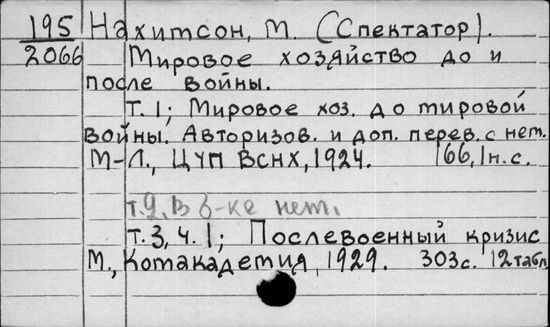 195 Нахимсон, М. (Спектатор).
2066 Мировое хозяйство до и
после войны.
Т. 1; Мировое хоз. до мировой
войны. Авторизов. и доп. перев. с нем.
М-Л., ЦУП ВСНХ, 1924. 166, 1н.с.
т.2. в б-ке нет.
Т. 3, ч. 1; Послевоенный кризис
М., Комакадемия, 1929. 303с. 12табл